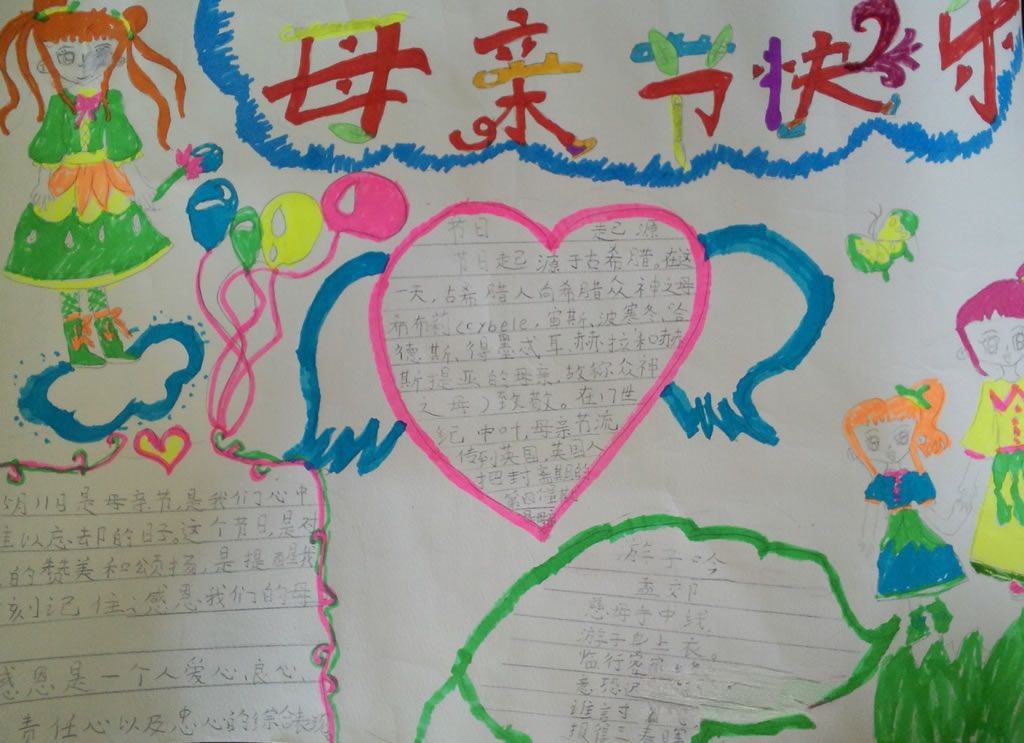 母亲节快乐
节日 起源
节日起源于古希腊。在这
一天,古希腊人向希腊众神之母
布莉(cybele,宙斯、波塞冬、哈
德斯、得墨忒耳、赫拉和赫
斯提亚的母亲,故称众神
之母)致敬。在17世
纪中叶,母亲节流
传到英国,英国人
把封斋期的
第四
5月11日是母亲节,是我们心中
以忘却的日子。这个节日,是对
的赞美和颂扬,是提醒我
刻记住,感恩我们的母
感恩是一个人爱心、良心、
责任心以及忠心的综合表现
游子吟
孟郊
慈母手中线
游子身上衣。
临行密
意恐迟
谁言寸
报得三春晖